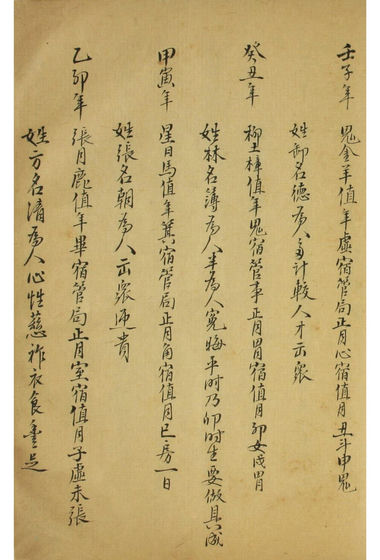 壬子年 鬼金羊值年虛宿管局正月心宿值月丑斗申鬼
姓卸名德為人多計較人才出眾
癸丑年 柳土樟值年鬼宿管事正月胃宿值月卯女戌胃
姓林名簿為人半為人寃晦平時乃卯時生要做具成
甲寅年 星日馬值年箕宿管局正月角宿值月巳房一日
姓張名朝為人出眾通貴
乙卯年 張月鹿值年畢宿管局正月室宿值月子虛未張
姓方名清為人心性慈祚衣食豊足